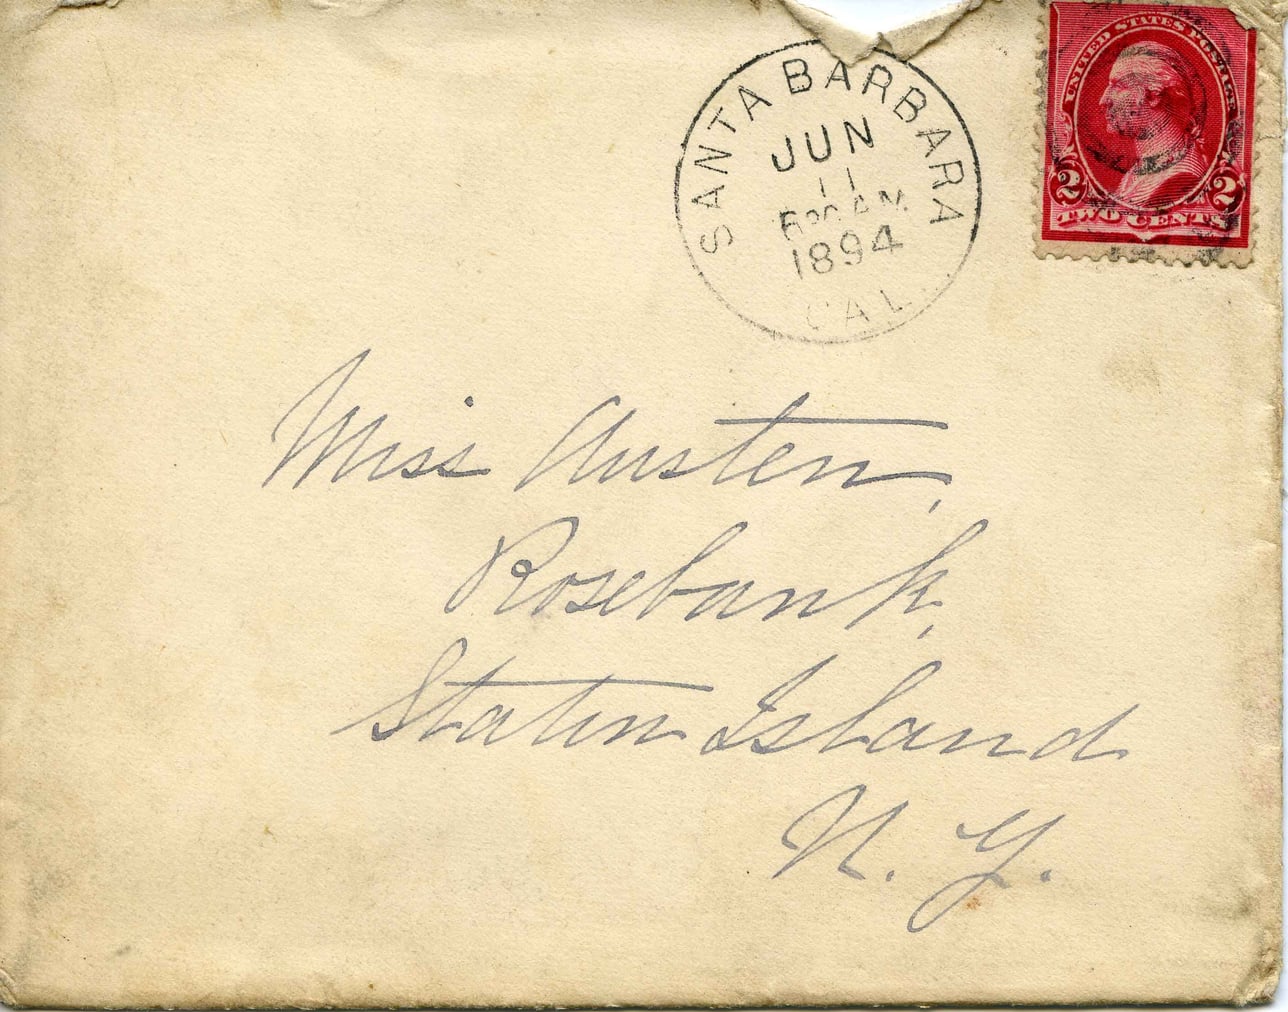 SANTA BARBARA
JUN
11
1894
CAL.
UNITED STATES POSTAGE
2 2
TWO CENTS
Miss Austen,
Rosebank,
Staten Island
N. Y.